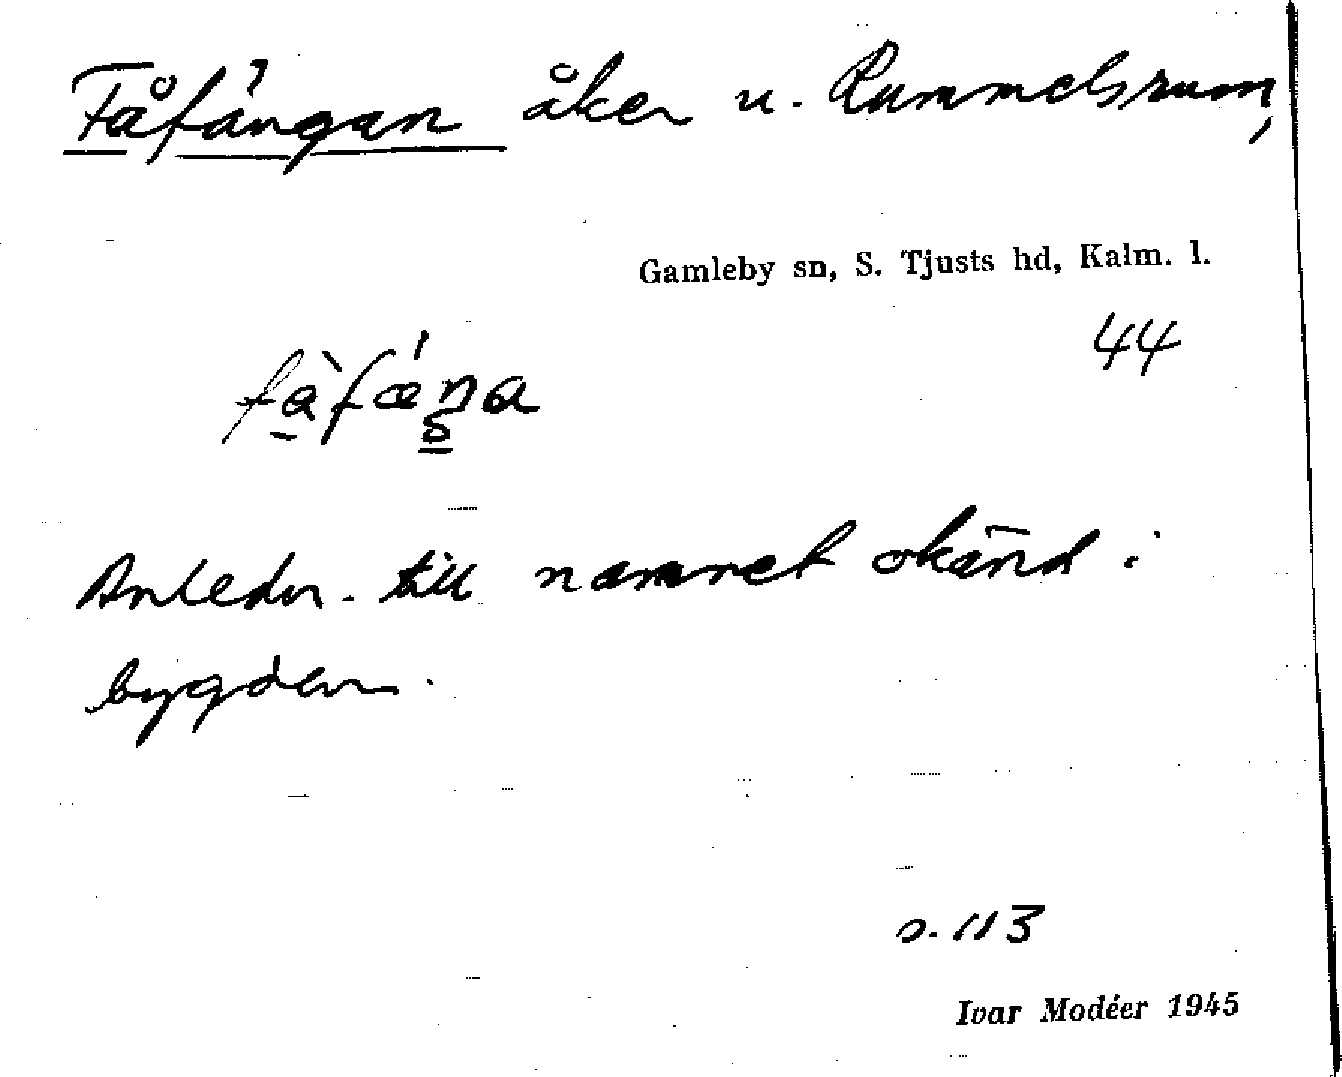 Fåfängan åker u. Rummelsrum,
Gamleby sn, S. Tjusts hd, Kalm. l.
44
Anledn. till namnet okänd i
bygden.
s. 113
Ivar Modéer 1945